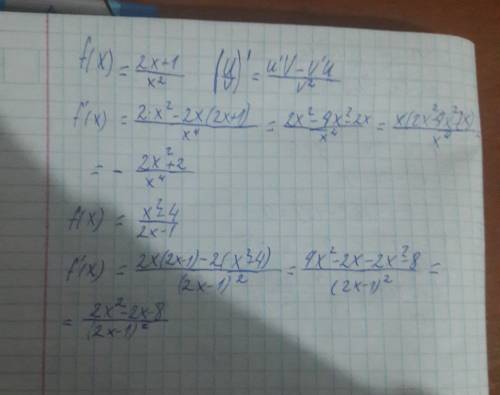 f(x) = (2x+1)/x² (u/v)' = (u'v - v'u)/v²
f'(x) = (2·x² - 2x(2x+1))/x⁴ = (2x² - 4x² - 2x)/x⁴ =
= - (2x²+2)/x⁴
f(x) = (x²-4)/(2x-1)
f'(x) = (2x(2x-1) - 2(x²-4))/(2x-1)² = (4x² - 2x - 2x² - 8)/(2x-1)² =
= (2x² - 2x - 8)/(2x-1)²